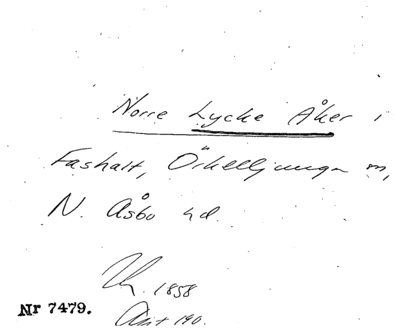 Norre Lycke Åker i
Fashalt, Örkelljunga m,
N. Åsbo hd.
1858
Akt 190.
Nr 7479.